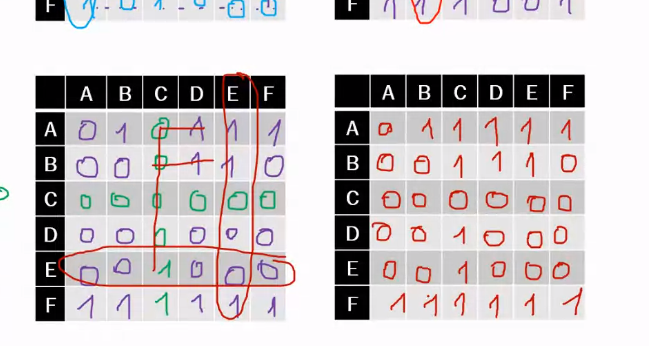 F 1 0 0 1 0 0 0
F 1 1 1 0 0 1
A B C D E F
A 0 1 0 1 1 1
B 0 0 0 1 1 0
C 0 0 0 0 0 0
D 0 0 1 0 0 0
E 0 0 1 0 0 0
F 1 1 1 1 1 1
A B C D E F
A 0 1 1 1 1 1
B 0 0 1 1 1 0
C 0 0 0 0 0 0
D 0 0 1 0 0 0
E 0 0 1 0 0 0
F 1 1 1 1 1 1